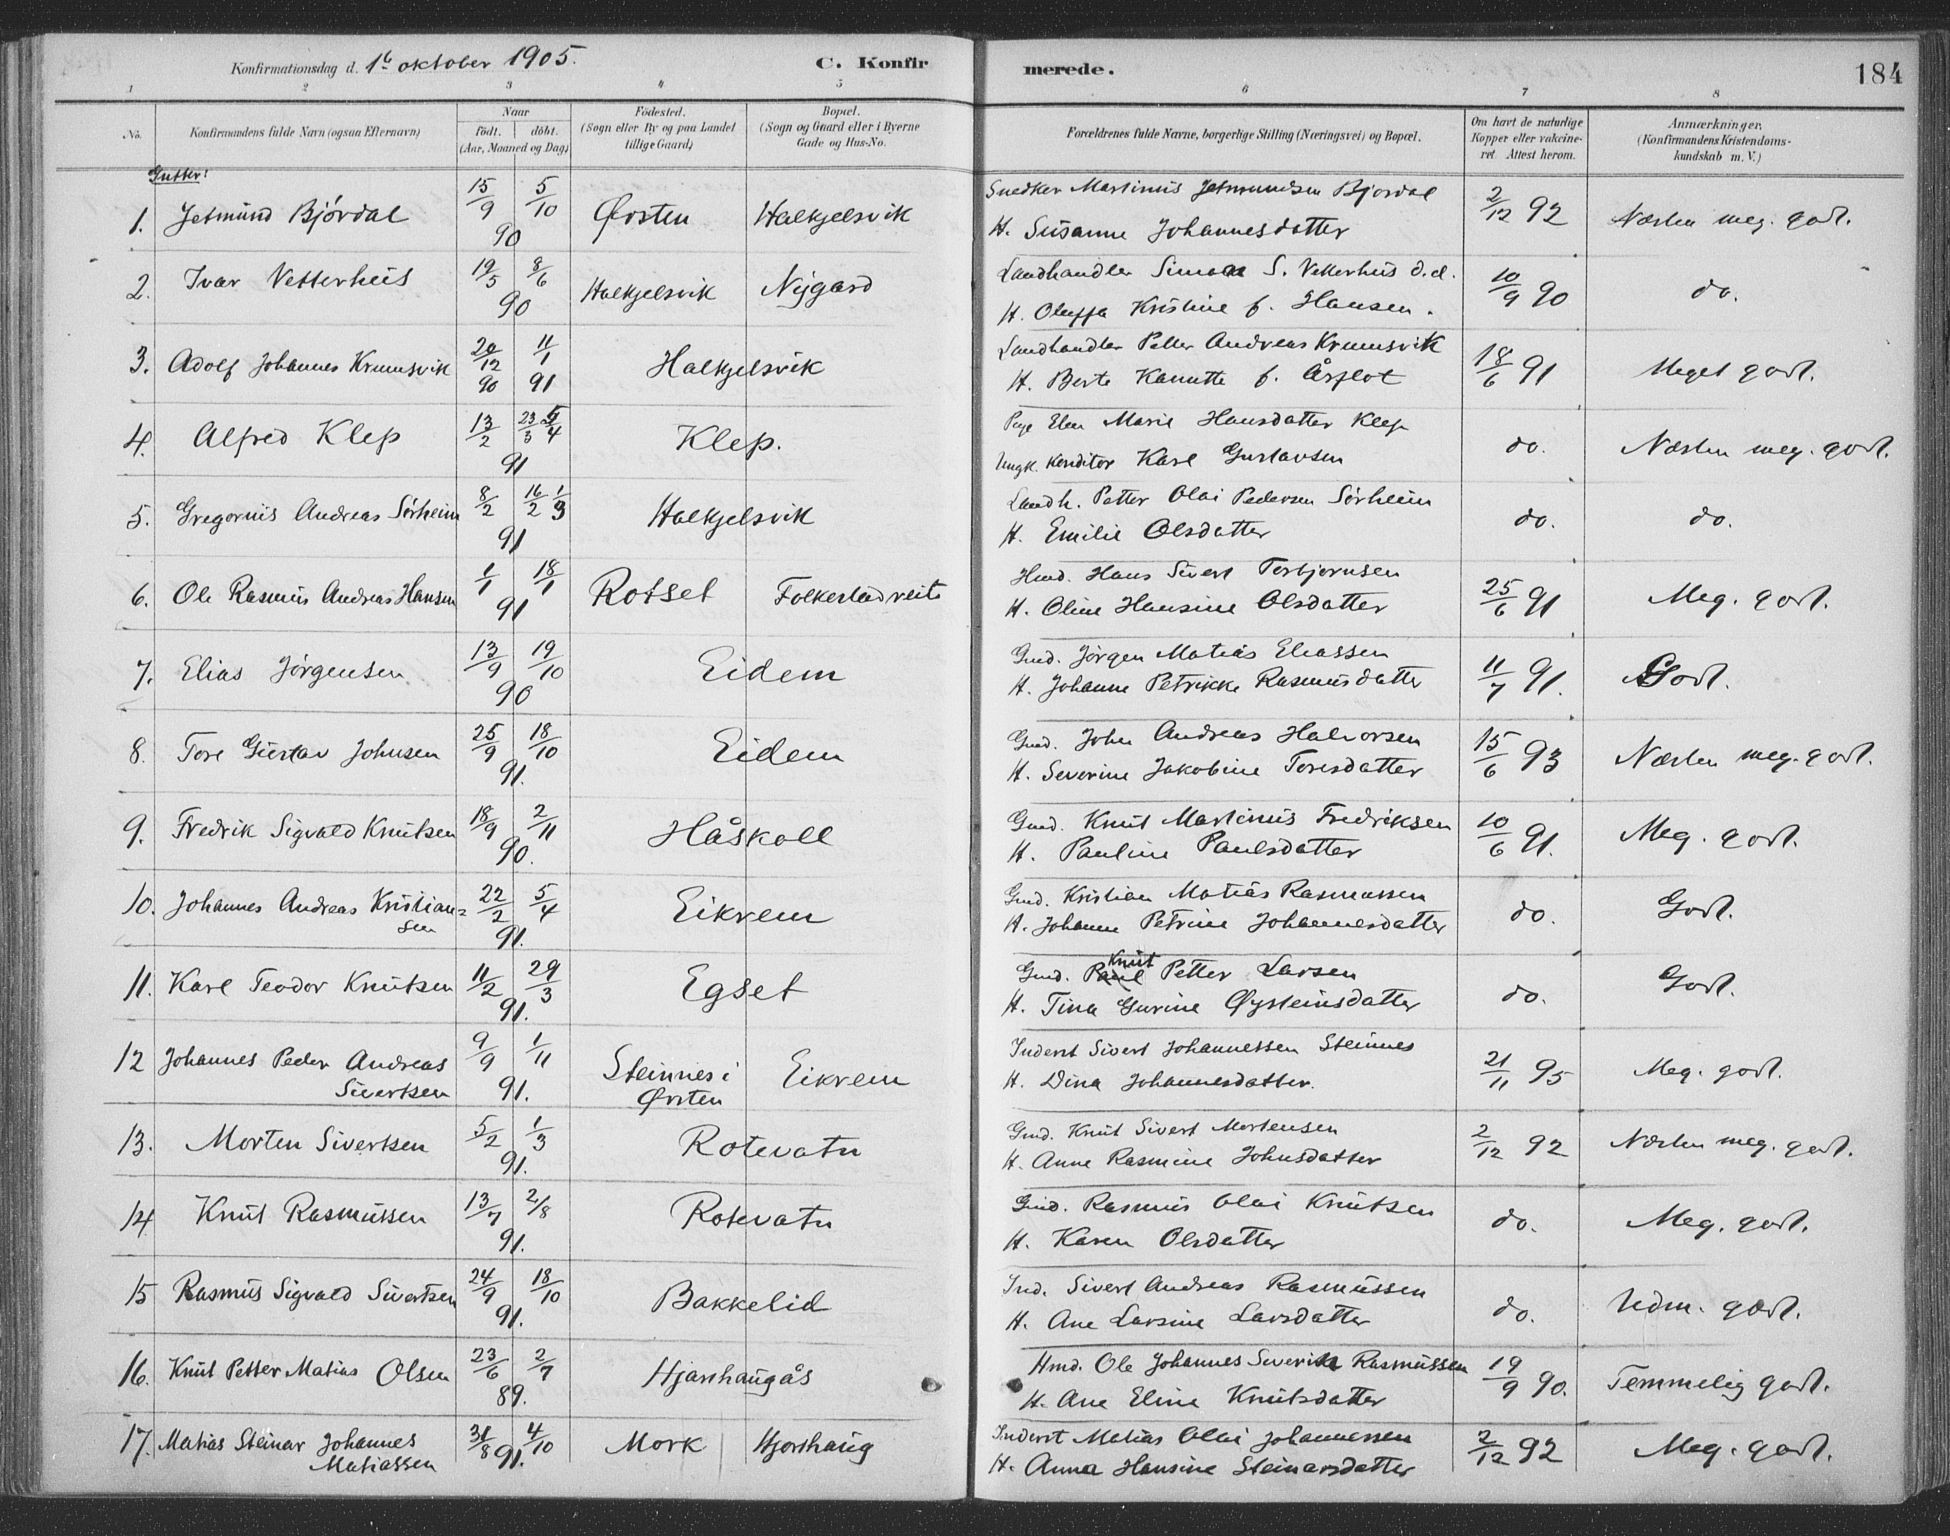 Konfirmationsdag d. 1ste oktober 1905. C. Konfirmerede. 184
1 2 3 4 5 6 7 8
No. Konfirmandens fulde Navn (ogsaa Efternavn) Naar födt. döbt. (Aar, Maaned og Dag) Födested. (Sogn eller By og paa Landet tillige Gaard) Bopæl. (Sogn og Gaard eller i Byerne Gade og Hus-No. Forældrenes fulde Navne, borgerlige Stilling (Næringsvei) og Bopæl. Om havt de naturlige Kopper eller vakcineret Attest herom. Anmærkninger. (Konfirmandens Kristendomskundskab m. V.)
Gutter:
1. Jetmund Bjórdal 15/9 5/10 90 Ørsten Halkjelsvik Snedker Martinus Jetmundsen Bjordal
H. Susanne Johannesdatter 2/12 92 Næsten meg. godt.
2. Ivar Vetterhus 19/5 8/6 90 Halkjelsvik Nygard Landhandler Simon S. Vetterhus d.d.
H. Oluffa Kristine f. Hansen. 10/9 90 do.
3. Adolf Johannes Krumsvik 20/12 90 11/1 91 Halkjelsvik Landhandler Petter Andreas Krumsvik
H. Berte Kanutte f. Årflot 18/6 91 Meget godt.
4. Alfred Klep 13/2 23/3 5/4 91 Klep. Pige Elen Marie Hansdatter Klep
Ungk. Konditor Karl Gustavsen do. Næsten meg. godt.
5. Gregorius Andreas Sørheim 8/2 16/2 1/3 91 Halkjelsvik Landh. Petter Olai Pedersen Sørheim
H. Emilie Olsdatter do. do.
6. Ole Rasmus Andreas Hansen 1/1 18/1 91 Rotset Folkestadreite Hmd. Hans Sivert Torbjornsen
H. Oline Hansine Olsdatter 25/6 91 Meg. godt.
7. Elias Jørgensen 13/9 19/10 90 Eidem Gmd. Jørgen Matias Eliassen
H. Johanne Petrikke Rasmusdatter 11/7 91. Godt.
8. Tore Gustav Johnsen 25/9 18/10 91. Eidem Gmd. John Andreas Halvorsen
H. Severine Jakobine Toresdatter 15/6 93 Næsten meg. godt.
9. Fredrik Sigvald Knutsen 18/9 2/11 90. Håskoll Gmd. Knut Martinus Fredriksen
H. Pauline Paulsdatter 10/6 91. Meg. godt.
10. Johannes Andreas Kristian=
sen 22/2 5/4 91. Eikrem Gmd. Kristian Matias Rasmussen
H. Johanne Petrine Johannesdatter do. Godt.
11. Karl Teodor Knutsen 11/2 29/3 91. Egset Gmd. Knut Petter Larsen
H. Tina Gurine Øysteinsdatter do. Godt.
12 Johannes Peder Andreas
Sivertsen 9/9 1/11 91. Steinnes i
Ørsten Eikrem Inderst Sivert Johannessen Steinnes
H. Dina Johannesdatter. 21/11 95 Meg. godt.
13. Morten Sivertsen 5/2 1/3 91. Rotevatn Gmd. Knut Sivert Mortensen
H. Anne Rasmine Johnsdatter 2/12 92 Næsten meg. godt.
14 Knut Rasmussen 13/7 2/8 91. Rotevatn Gmd. Rasmus Olai Knutsen
H. Karen Olsdatter do. Meg. godt.
15 Rasmus Sigvald Sivertsen 24/9 18/10 91. Bakkelid Ind. Sivert Andreas Rasmussen
H. Ane Larsine Larsdatter do. Udm. godt.
16. Knut Petter Matias Olsen 23/6 2/7 89. Hjorthaugås Hmd. Ole Johannes Severin Rasmussen
H. Ane Eline Knutsdatter 19/9 90. Temmelig godt.
17. Matias Steinar Johannes
Matiassen 31/8 4/10 91. Mork Hjorthaug Inderst Matias Olai Johannessen
H. Anna Hansine Steinarsdatter 2/12 92 Meg. godt.